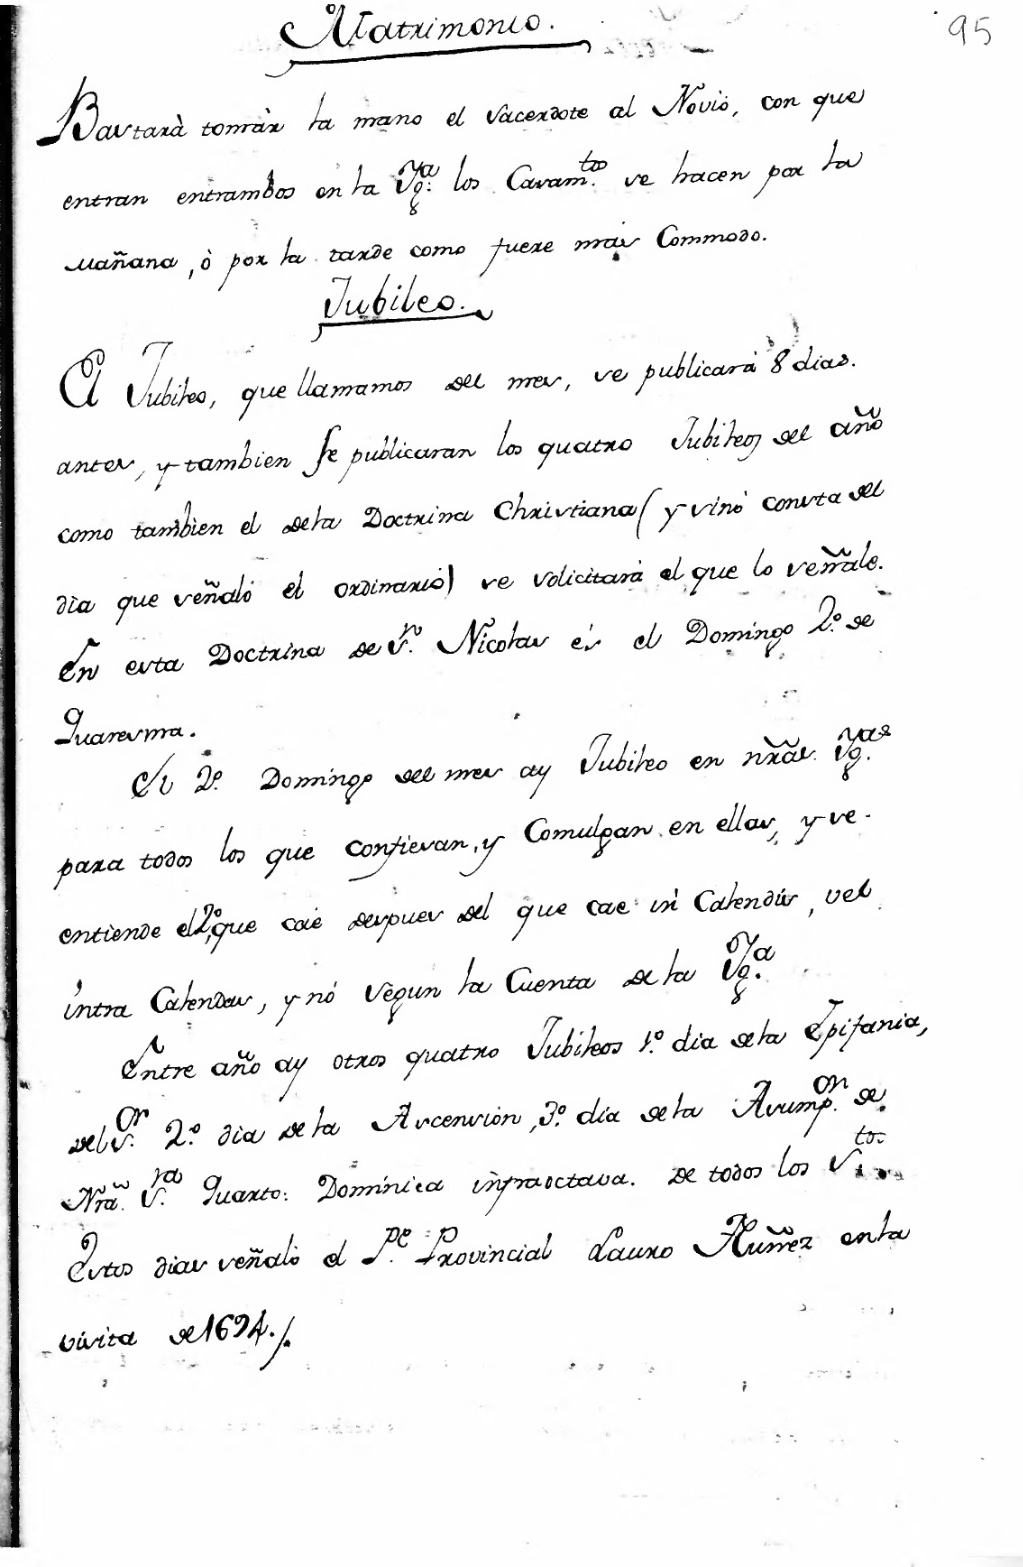 Matrimonio.
95
Bastarà tomàr la mano el sacerdote al Novio, con que
entran entrambos en la Yg.ª los Casam.tos se hacen por la
mañana, ò por la tarde como fuere mas Commodo.
Jubileo.
El Jubileo, que llamamos del mes, se publicarà 8 dias.
antes, y tambien se publicaran los quatro Jubileos del año
como tambien el dela Doctrina Christiana (y sinó consta del
dia que señaló el ordinario) se solicitarà el que lo señale.
En esta Doctrina de S.n Nicolas es el Domingo 2.º de
Quaresma.
El 2.º Domingo del mes ay Jubileo en nr̃as Yg.as
para todos los que confiesan, y Comulgan en ellas, y se
entiende el 2.º que cae despues del que cae in Calendis, vel
intra Calendas, y nó segun la Cuenta de la Yg.ª
Entre año ay otros quatro Jubileos 1.º dia dela Epifania,
del S.or 2.º dia de la Ascension, 3.º dia de la Asump.on de
Nrã. S.ra Quarto: Dominica infraoctava. de todos los S.tos
Estos dias señaló el P.e Provincial Lauro Nuñez enla
visita de 1694./.